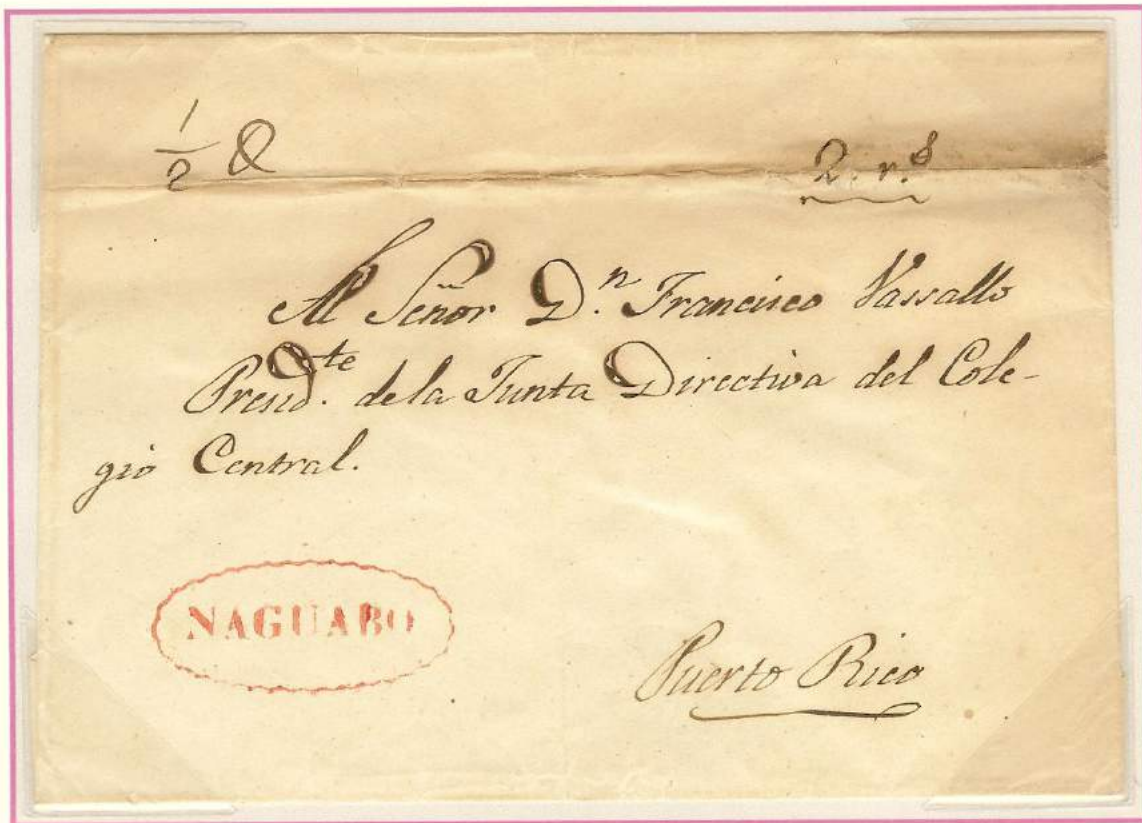 1/2 O
2. r.s
Al Señor D.n Francisco Vassallo
Presid.te de la Junta Directiva del Cole-
gio Central.
NAGUABO
Puerto Rico